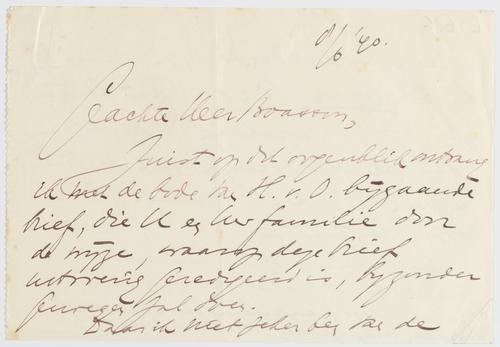 8/6 '40.
Geachte Heer Boasson,
Juist op dit oogenblik ontvang
ik met de bode van H. v. O. bijgaande
brief, die U en Uw familie door
de wijze, waarop deze brief
uitvoerig geredigeerd is, bijzonder
genoegen zal doen.
Daar ik niet zeker ben van de